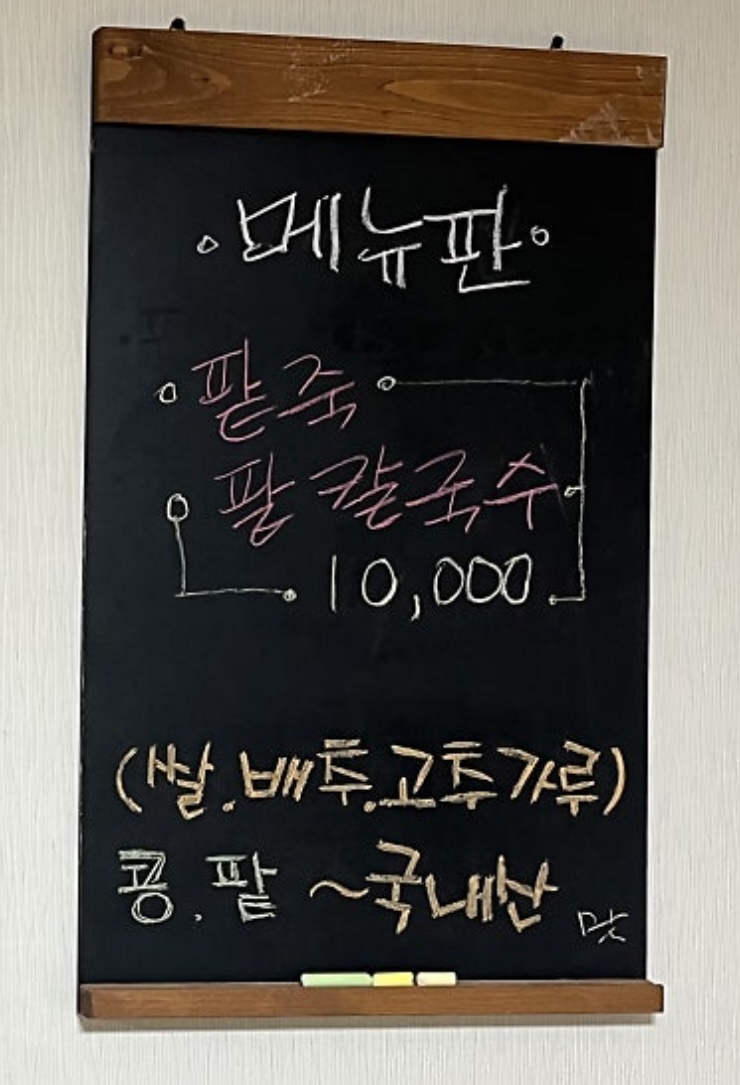 메뉴판
팥죽
팥칼국수
10,000
(쌀.배추.고추가루)
콩.팥 ~국내산
맛